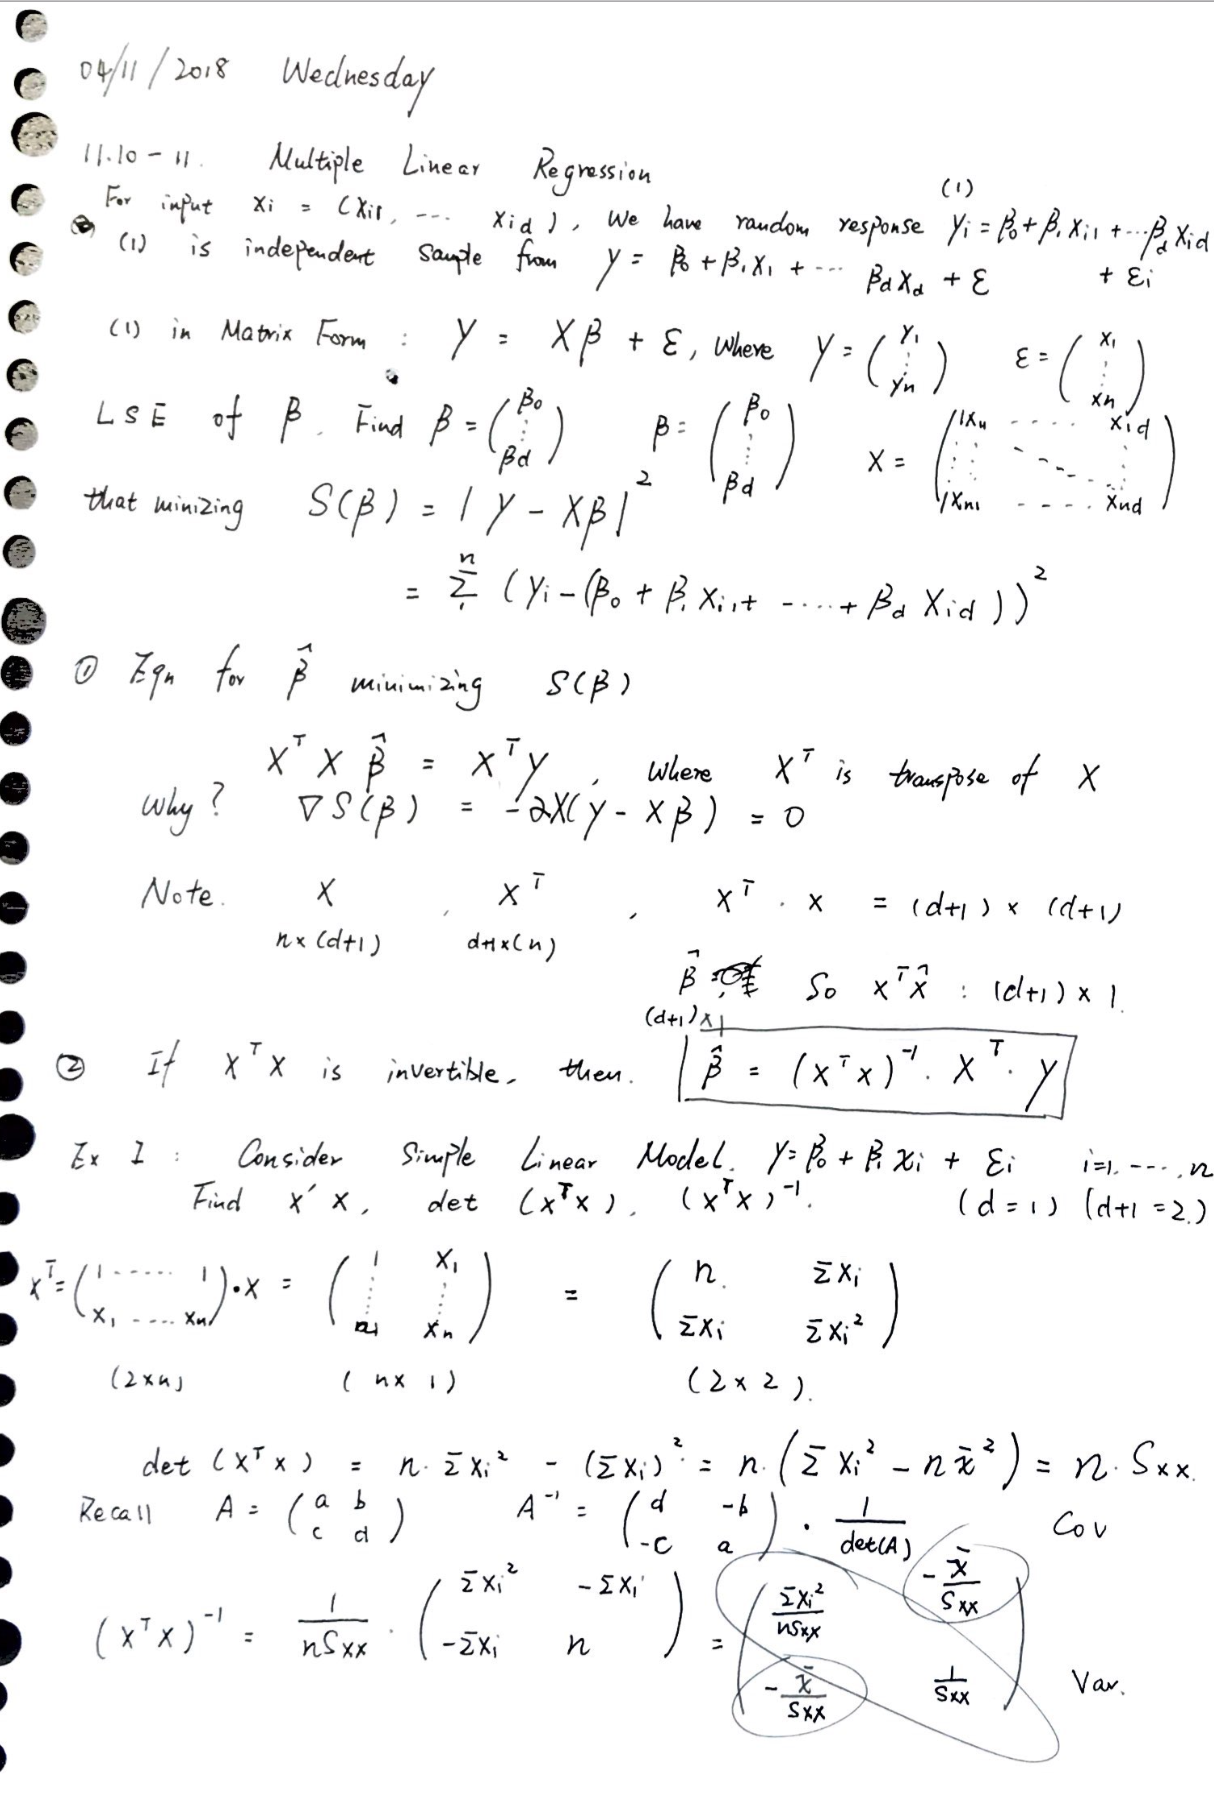 04/11/2018 Wednesday
11.10-11. Multiple Linear Regression
For input xi = (xi1, --- xid), We have random response yi = β0 + β1 xi1 + ... βd xid + εi (1)
(1) is independent sample from y = β0 + β1 x1 + --- βd xd + ε
(1) in Matrix Form : Y = Xβ + ε, where Y = (y1 ⋮ yn) ε = (x1 ⋮ xn)
LSE of β. Find β = (β0 ⋮ βd) β = (β0 ⋮ βd) X = (1 x11 ---- x1d ⋮ 1 xn1 ---- xnd)
that minizing S(β) = |Y - Xβ|²
= Σⁿ (yi - (β0 + β1 xi1 + ---- + βd xid))²
① Eqn for β̂ minimizing S(β)
XᵀX β̂ = XᵀY, where Xᵀ is transpose of X
Why? ∇S(β) = -2X(y - Xβ) = 0
Note. X , Xᵀ , Xᵀ · X = (d+1) × (d+1)
n×(d+1) d+1×(n)
β̂ So Xᵀx̂ : (d+1) × 1.
(d+1)×1
② If XᵀX is invertible, then. β̂ = (XᵀX)⁻¹ · Xᵀ · Y
Ex 1 : Consider Simple Linear Model. y = β0 + β1 xi + εi i=1, ---, n
Find X'X, det (XᵀX), (XᵀX)⁻¹. (d=1) (d+1=2.)
Xᵀ = (1 ----- 1 x1 ---- xn) · X = (1 x1 ⋮ 1 xn) = (n. Σxi Σxi Σxi²)
(2×n) (n×1) (2×2).
det (XᵀX) = n · Σxi² - (Σxi)² = n · (Σxi² - n x̄²) = n · Sxx.
Recall A = (a b c d) A⁻¹ = (d -b -c a) · 1/det(A) Cov
(XᵀX)⁻¹ = 1/nSxx · (Σxi² -Σxi -Σxi n) = (Σxi²/nSxx -x̄/Sxx -x̄/Sxx 1/Sxx) Var.